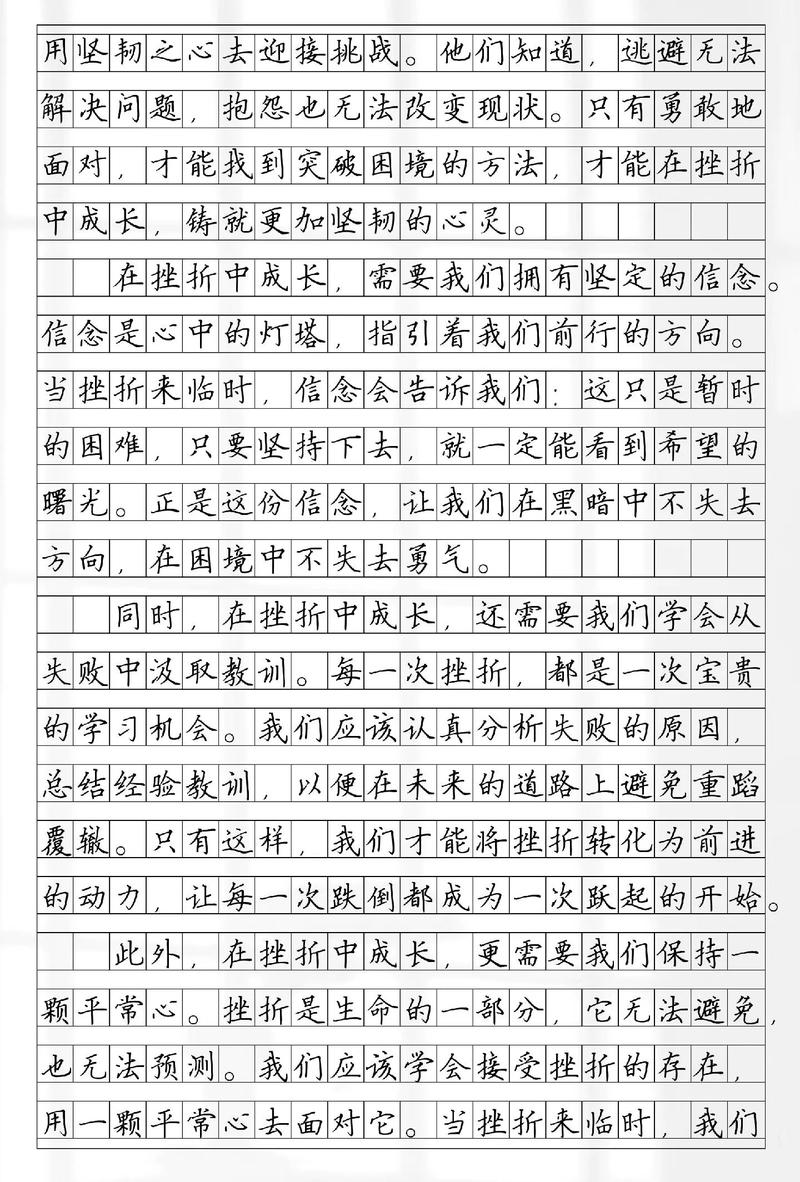 用坚韧之心去迎接挑战。他们知道，逃避无法
解决问题，抱怨也无法改变现状。只有勇敢地
面对，才能找到突破困境的方法，才能在挫折
中成长，铸就更加坚韧的心灵。
在挫折中成长，需要我们拥有坚定的信念。
信念是心中的灯塔，指引着我们前行的方向。
当挫折来临时，信念会告诉我们：这只是暂时
的困难，只要坚持下去，就一定能看到希望的
曙光。正是这份信念，让我们在黑暗中不失去
方向，在困境中不失去勇气。
同时，在挫折中成长，还需要我们学会从
失败中汲取教训。每一次挫折，都是一次宝贵
的学习机会。我们应该认真分析失败的原因，
总结经验教训，以便在未来的道路上避免重蹈
覆辙。只有这样，我们才能将挫折转化为前进
的动力，让每一次跌倒都成为一次跃起的开始。
此外，在挫折中成长，更需要我们保持一
颗平常心。挫折是生命的一部分，它无法避免，
也无法预测。我们应该学会接受挫折的存在，
用一颗平常心去面对它。当挫折来临时，我们